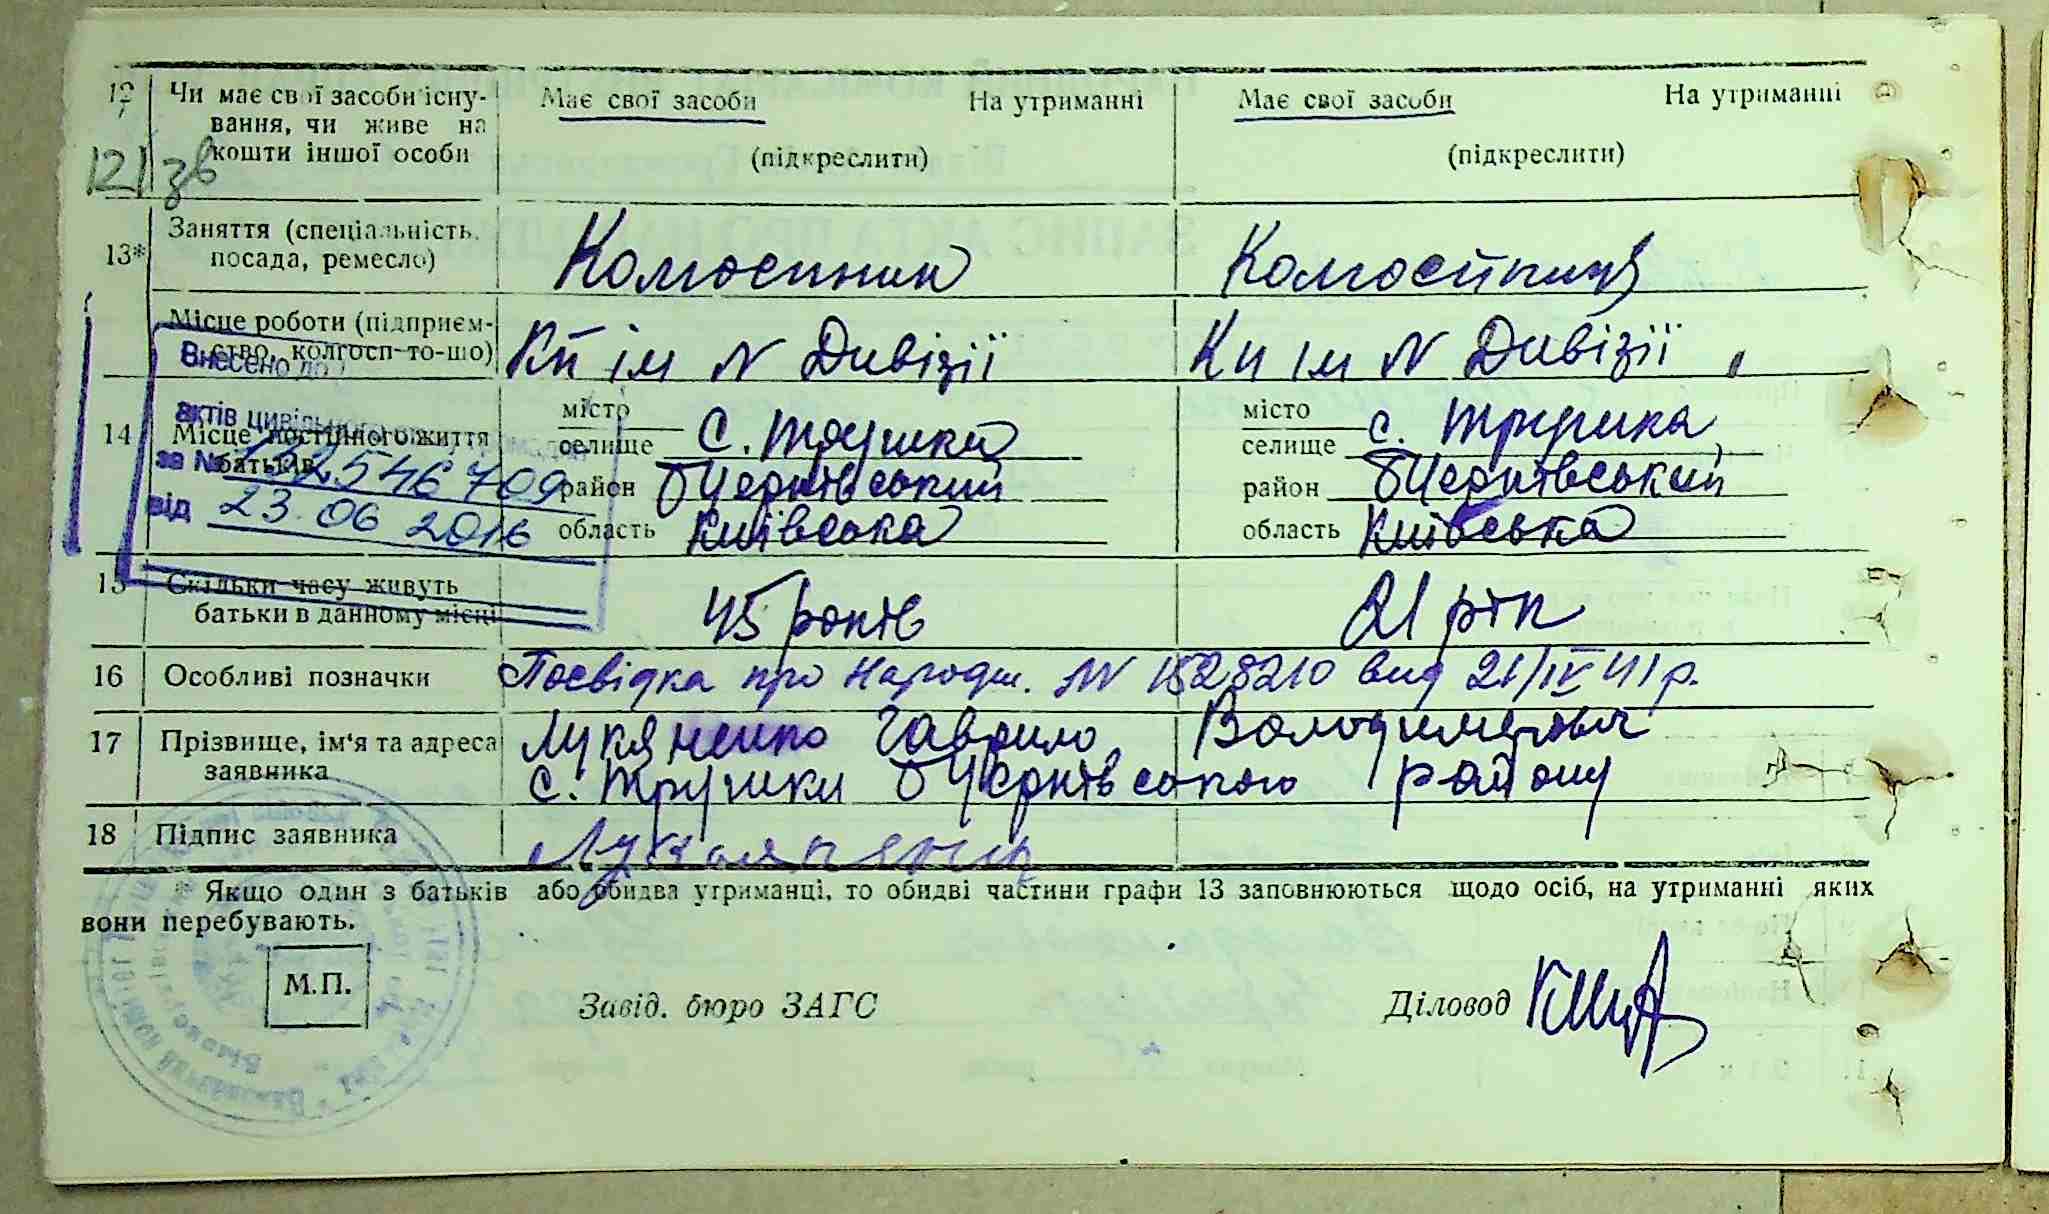 12 Чи має свої засоби існу- Має свої засоби На утриманні Має свої засоби На утриманні
вання, чи живе на
кошти іншої особи (підкреслити) (підкреслити)
121 зв
13* Заняття (спеціальність, посада, ремесло) Колгоспник Колгоспниця
Місце роботи (підприєм-
ство, колгосп то-що) ім N Дивізії ім N Дивізії
Внесено до
актів цивільного
14 Місце постійного життя батьків місто селище с. Трушки місто селище с. Трушка
за № 546709 район БЦерківський район БЦерківський
від 23.06 2016 область Київська область Київська
15 Скільки часу живуть
батьки в данному місці 45 років 21 рік
16 Особливі позначки Посвідка про народж. № 1528210 вид 21/IV 41 р.
17 Прізвище, ім'я та адреса Лукяненко Гаврило Володимерович
заявника с. Трушки БЦерківського району
18 Підпис заявника
* Якщо один з батьків або обидва утриманці, то обидві частини графи 13 заповнюються щодо осіб, на утриманні яких
вони перебувають.
М.П. Завід. бюро ЗАГС Діловод